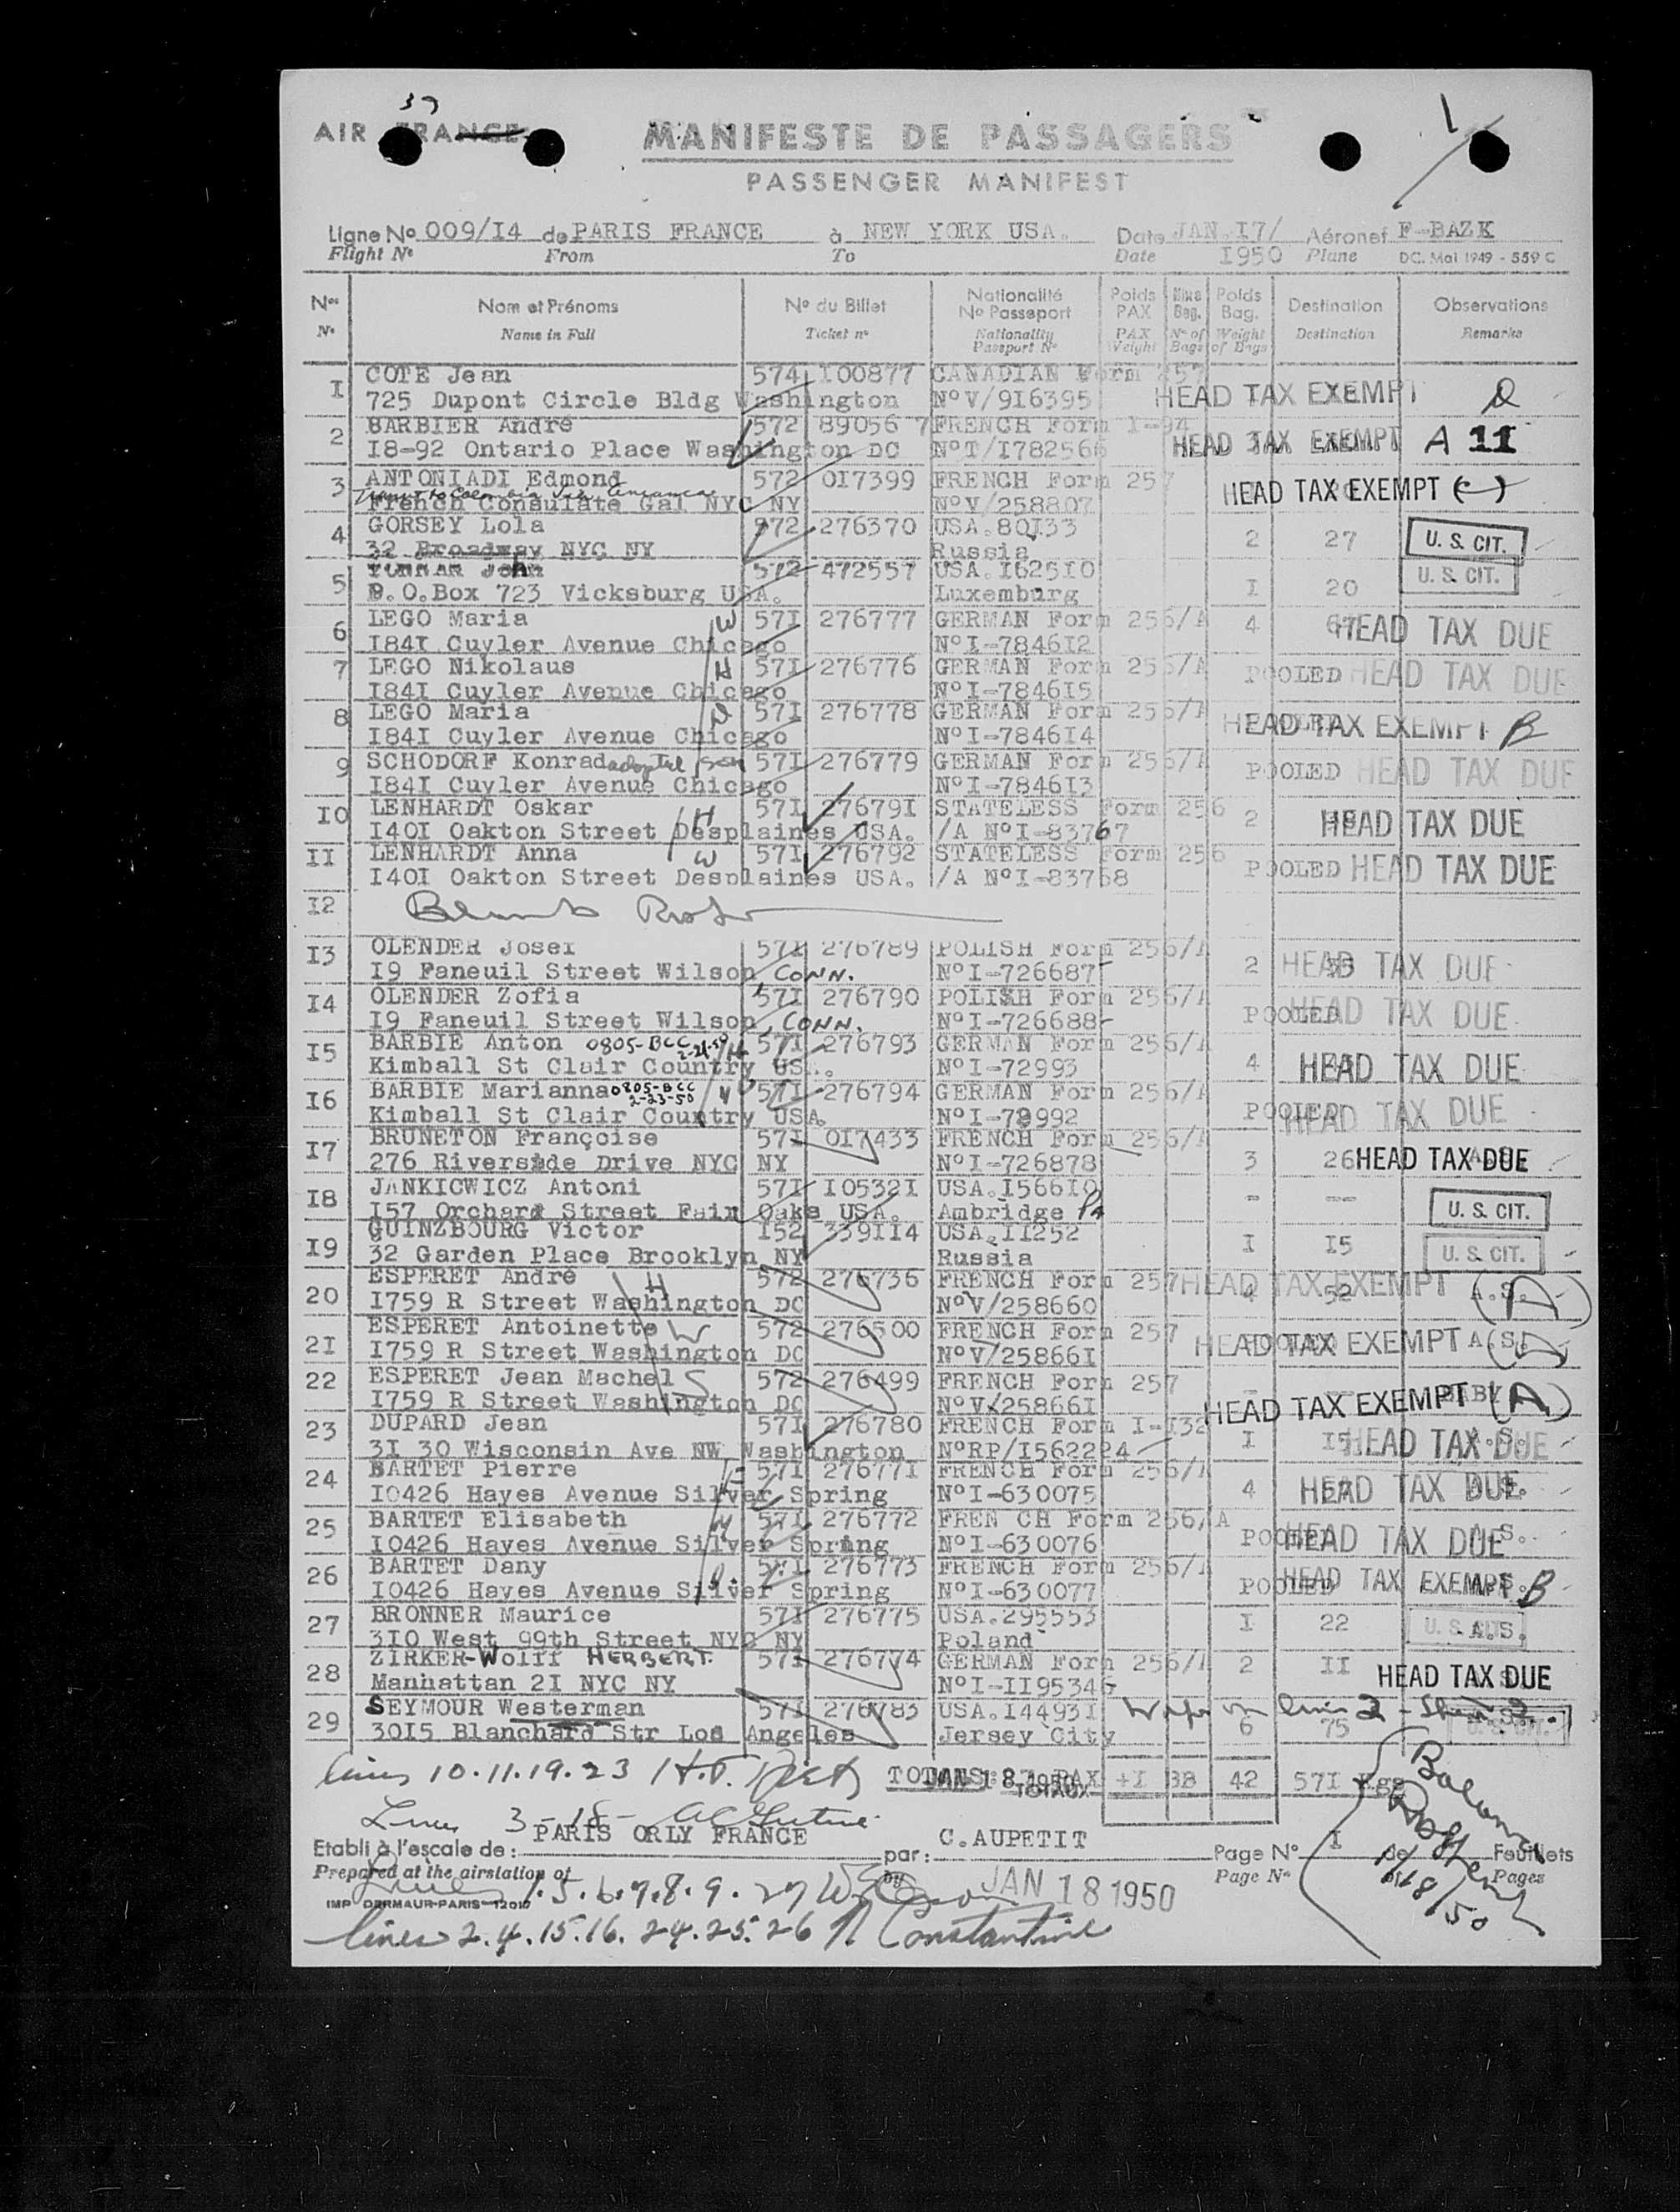 37
AIR FRANCE
MANIFESTE DE PASSAGERS
PASSENGER MANIFEST
Ligne No 009/I4 de PARIS FRANCE à NEW YORK USA. Date JAN.I7/ Aéronef F-BAZK
Flight No From To Date I950 Plane DC. Mai 1949 - 559 C
Nos Nom et Prénoms No du Billet Nationalité No Passeport Poids PAX Nbre Bag. Poids Bag. Destination Observations
No Name in Full Ticket no Nationality Passport No PAX Weight No of Bags Weight of Bags Destination Remarks
I COTE Jean 574 I00877 CANADIAN Form 257
725 Dupont Circle Bldg Washington NoV/9I6395 HEAD TAX EXEMPT
2 BARBIER André 572 89056 7 FRENCH Form I-94
I8-92 Ontario Place Washington DC NoT/I782566 HEAD TAX EXEMPT A 11
3 ANTONIADI Edmond 572 0I7399 FRENCH Form 257
French Consulate Gal NYC NY NoV/258807 HEAD TAX EXEMPT
4 GORSEY Lola 572 276370 USA.80I33
32 Broadway NYC NY Russia 2 27 U. S. CIT.
5 John 572 472557 USA.I625I0
P.O.Box 723 Vicksburg USA. Luxemburg I 20 U. S. CIT.
6 LEGO Maria W 57I 276777 GERMAN Form 256/A
I84I Cuyler Avenue Chicago NoI-7846I2 4 HEAD TAX DUE
7 LEGO Nikolaus H 57I 276776 GERMAN Form 256/A
I84I Cuyler Avenue Chicago NoI-7846I5 POOLED HEAD TAX DUE
8 LEGO Maria 57I 276778 GERMAN Form 256/A
I84I Cuyler Avenue Chicago NoI-7846I4 HEAD TAX EXEMPT B
9 SCHODORF Konrad adopted son 57I 276779 GERMAN Form 256/A
I84I Cuyler Avenue Chicago NoI-7846I3 POOLED HEAD TAX DUE
I0 LENHARDT Oskar H 57I 27679I STATELESS Form 256
I40I Oakton Street Desplaines USA. /A NoI-83767 2 HEAD TAX DUE
II LENHARDT Anna W 57I 276792 STATELESS Form 256
I40I Oakton Street Desplaines USA. /A NoI-83768 POOLED HEAD TAX DUE
I2
I3 OLENDER Josef 57I 276789 POLISH Form 256/A
I9 Faneuil Street Wilson, CONN. NoI-726687 2 HEAD TAX DUE
I4 OLENDER Zofia 57I 276790 POLISH Form 256/A
I9 Faneuil Street Wilson, CONN. NoI-726688 POOLED HEAD TAX DUE
I5 BARBIE Anton 0805-BCC 57I 276793 GERMAN Form 256/A
Kimball St Clair Country USA. NoI-72993 4 HEAD TAX DUE
I6 BARBIE Marianna 0805-BCC 2-23-50 W 57I 276794 GERMAN Form 256/A
Kimball St Clair Country USA. NoI-72992 POOLED HEAD TAX DUE
I7 BRUNETON Françoise 57I 0I7433 FRENCH Form 256/A
276 Riverside Drive NYC NY NoI-726878 3 26 HEAD TAX DUE
I8 JANKICWICZ Antoni 57I I0532I USA.I566I0
I57 Orchard Street Fair Oaks USA. Ambridge Pa - -- U. S. CIT.
I9 GUINZBOURG Victor I52 339II4 USA.II252
32 Garden Place Brooklyn NY Russia I I5 U. S. CIT.
20 ESPERET André H 572 276736 FRENCH Form 257 HEAD TAX EXEMPT
I759 R Street Washington DC NoV/258660 4 52 A.S. (A)
2I ESPERET Antoinette W 572 276500 FRENCH Form 257
I759 R Street Washington DC NoV/25866I HEAD TAX EXEMPT A.S.
22 ESPERET Jean Machel S 572 276499 FRENCH Form 257
I759 R Street Washington DC NoV/25866I HEAD TAX EXEMPT BABY (A)
23 DUPARD Jean 57I 276780 FRENCH Form I-I32
3I 30 Wisconsin Ave NW Washington NoRP/I562224 I I5 HEAD TAX DUE A.S.
24 BARTET Pierre 57I 27677I FRENCH Form 256/A
I0426 Hayes Avenue Silver Spring NoI-630075 4 HEAD TAX DUE
25 BARTET Elisabeth W 57I 276772 FREN CH Form 256/A
I0426 Hayes Avenue Silver Spring NoI-630076 POOLED HEAD TAX DUE A.S.
26 BARTET Dany 57I 276773 FRENCH Form 256/A
I0426 Hayes Avenue Silver Spring NoI-630077 POOLED HEAD TAX EXEMPT B
27 BRONNER Maurice 57I 276775 USA.295553
3I0 West 99th Street NYC NY Poland I 22 U. S. CIT. A.S.
28 ZIRKER-Wolff HERBERT 57I 276774 GERMAN Form 256/A 2 II
Manhattan 2I NYC NY NoI-II95346 HEAD TAX DUE
29 SEYMOUR Westerman 57I 276783 USA.I4493I
30I5 Blanchard Str Los Angeles Jersey City 6 75 U. S. CIT.
lines 10.11.19.23 TOTALS: PAX +I BB 42 57I Kgs
TOTAUX
Lines 3-18-
Etabli à l'escale de : PARIS ORLY FRANCE par: C.AUPETIT Page No I de Feuillets
Prepared at the airstation of by JAN 18 1950 Page No of Pages
IMP DERMAUR-PARIS
Lines 1.5.6.7.8.9.27
1/18/50
lines 2.4.15.16.24.25.26 N Constantine